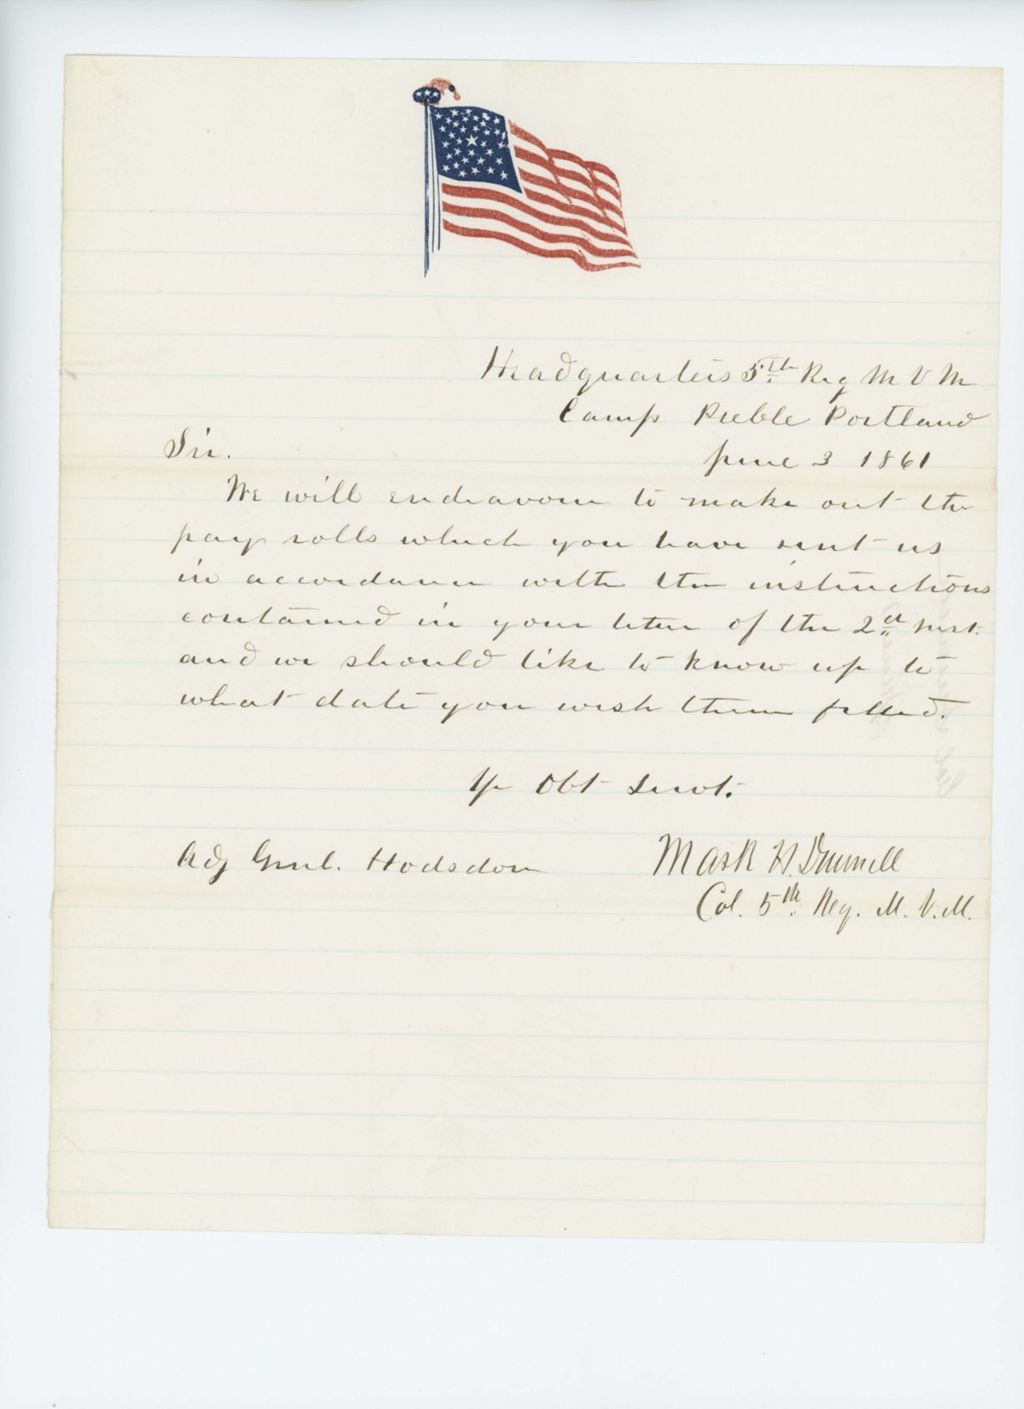 Headquarters 5th Reg M V M
Camp Preble Portland
June 3 1861
Sir.
We will endeavour to make out the
pay rolls which you have sent us
in accordance with the instructions
contained in your letter of the 2d inst.
and we should like to know up to
what date you wish them filled.
Yr Obt Servt.
Adj Genl. Hodsdon
Mark H. Dunnell
Col. 5th. Reg. M. V. M.